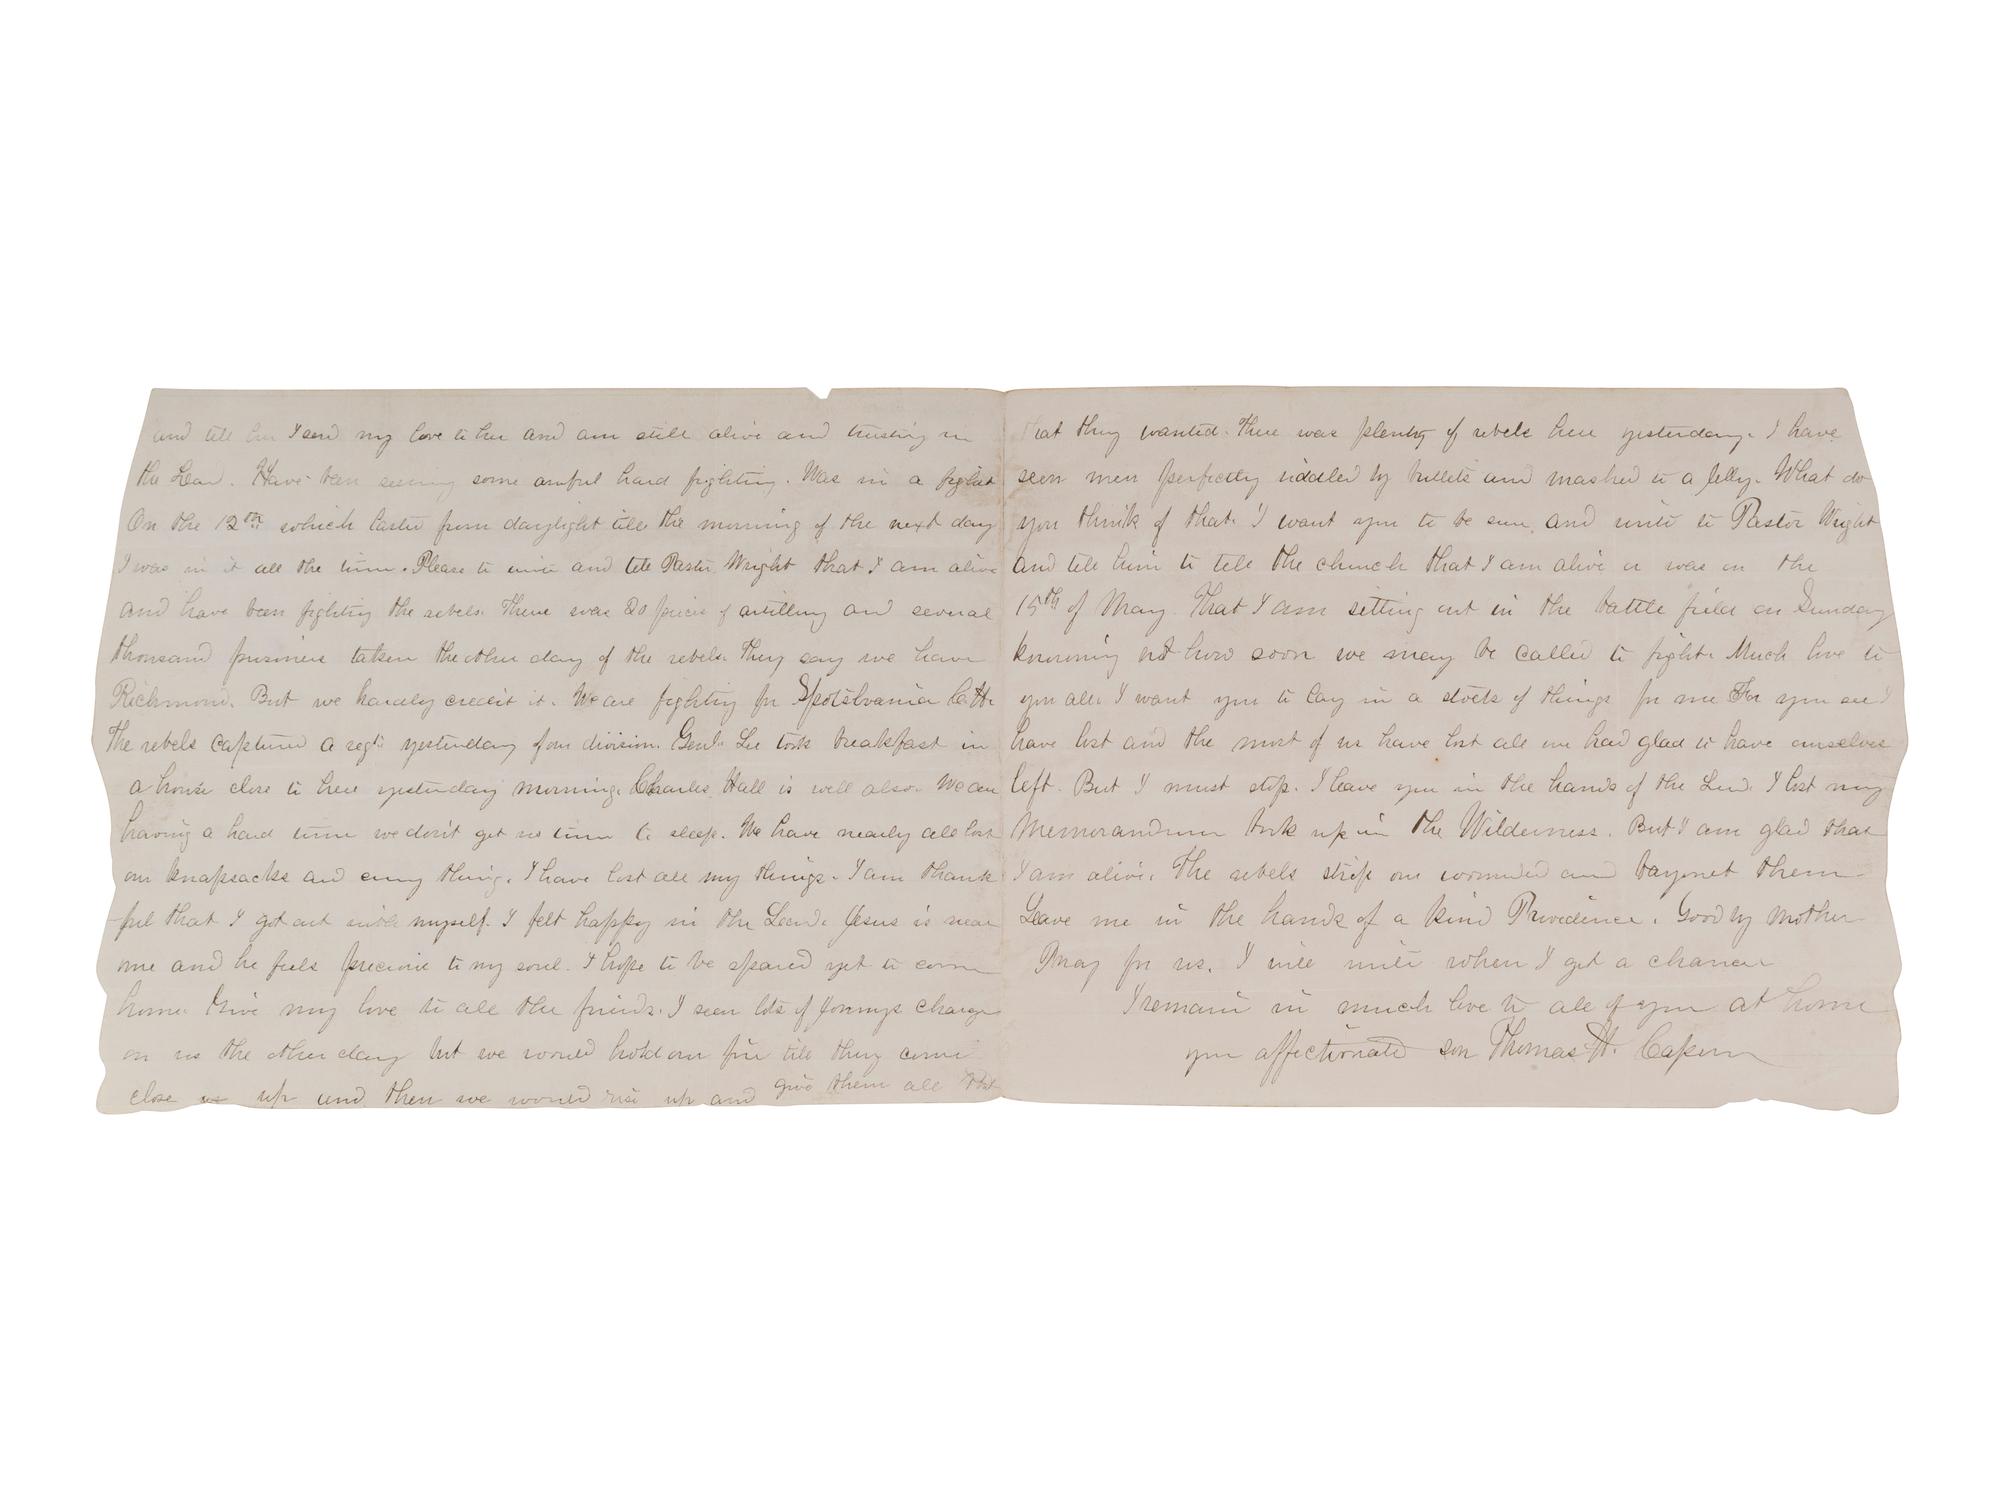 and tell her I send my love to her and am still alive and trusting in
the Lord. Have been seeing some awful hard fighting. Was in a fight
On the 12th which lasted from daylight till the morning of the next day
I was in it all the time. Please to write and tell Pastor Wright that I am alive
and have been fighting the rebels. There was 20 pieces of artillery and several
thousand prisoners taken the other day of the rebels. They say we have
Richmond. But we hardly credit it. We are fighting for Spotslvania C.H.
The rebels captured a regt. yesterday of our division. Genl. Lee took breakfast in
a house close to here yesterday morning. Charles Hall is well also. We are
having a hard time we don't get no time to sleep. We have nearly all lost
our knapsacks and every thing. I have lost all my things. I am thank
-ful that I got out with myself. I felt happy in the Lord. Jesus is near
me and he feels precious to my soul. I hope to be spared yet to come
home. Give my love to all the friends. I seen lots of Jonnys charge
on us the other day but we would hold our fire till they come
close up and then we would rise up and give them all that
that they wanted. There was plenty of rebels here yesterday. I have
seen men perfectly riddled by bullets and mashed to a Jelly. What do
you think of that. I want you to be sure and write to Pastor Wright
and tell him to tell the church that I am alive or was on the
15th of May. That I am sitting out in the battle field on Sunday
knowing not how soon we may be called to fight. Much love to
you all. I want you to lay in a stock of things for me For you see I
have lost and the most of us have lost all we had glad to have ourselves
left. But I must stop. I leave you in the hands of the Lord. I lost my
Memorandum book up in the Wilderness. But I am glad that
I am alive. The rebels strip our wounded and bayonet them
Leave me in the hands of a kind Providence. Good by Mother
Pray for us. I will write when I get a chance
I remain in much love to all of you at home
your affectionate son Thomas H. Capern